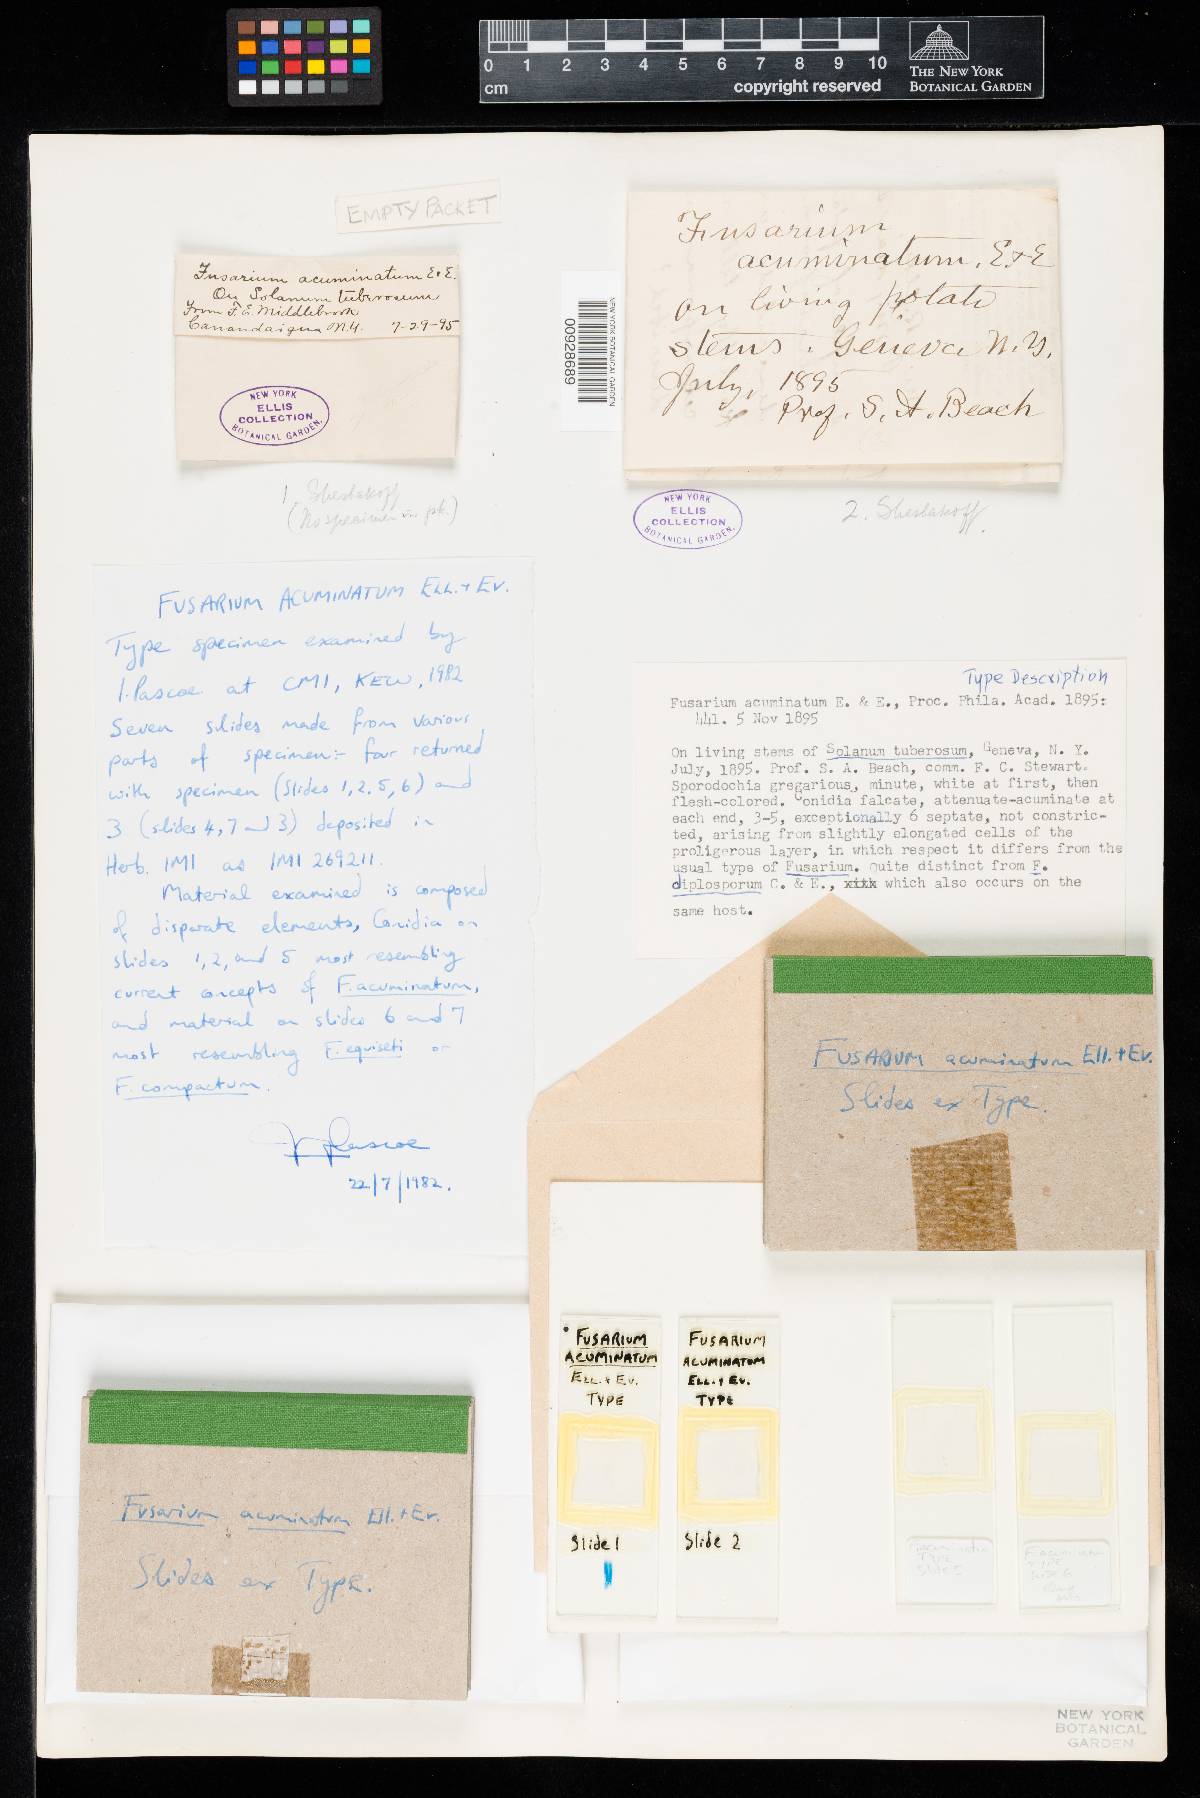 0 1 2 3 4 5 6 7 8 9 10
cm
copyright reserved
THE NEW YORK
BOTANICAL GARDEN
EMPTY PACKET
Fusarium acuminatum E&E.
On Solanum tuberosum
From F. E. Middlebrook
Canandaigua N.Y. 7-29-95
NEW YORK
ELLIS
COLLECTION
BOTANICAL GARDEN.
1. Sheshakoff
(No specimen in pkt.)
NEW YORK BOTANICAL GARDEN
00928689
Fusarium
acuminatum, E&E
on living potato
stems. Geneva N.Y.
July, 1895
Prof. S. A. Beach
NEW YORK
ELLIS
COLLECTION
BOTANICAL GARDEN.
2. Sheshakoff.
FUSARIUM ACUMINATUM ELL. + EV.
Type specimen examined by
I. Pascoe at CMI, KEW, 1982
Seven slides made from various
parts of specimen:- four returned
with specimen (slides 1, 2, 5, 6) and
3 (slides 4, 7 and 3) deposited in
Herb. IMI as IMI 269211.
Material examined is composed
of disparate elements, Conidia on
slides 1, 2, and 5 most resembling
current concepts of F. acuminatum,
and material on slides 6 and 7
most resembling F. equiseti or
F. compactum.
Pascoe
22/7/1982.
Type Description
Fusarium acuminatum E. & E., Proc. Phila. Acad. 1895:
441. 5 Nov 1895
On living stems of Solanum tuberosum, Geneva, N. Y.
July, 1895. Prof. S. A. Beach, comm. F. C. Stewart.
Sporodochia gregarious, minute, white at first, then
flesh-colored. Conidia falcate, attenuate-acuminate at
each end, 3-5, exceptionally 6 septate, not constric-
ted, arising from slightly elongated cells of the
proligerous layer, in which respect it differs from the
usual type of Fusarium. Quite distinct from F.
diplosporum C. & E., which also occurs on the
same host.
FUSARIUM acuminatum Ell. + Ev.
Slides ex Type.
Fusarium acuminatum Ell. + Ev.
Slides ex Type.
FUSARIUM
ACUMINATUM
ELL. + EV.
TYPE
Slide 1
FUSARIUM
ACUMINATUM
ELL. + EV.
TYPE
Slide 2
F. acuminatum
TYPE
Slide 5
F. acuminatum
TYPE
Slide 6
NEW YORK
BOTANICAL
GARDEN